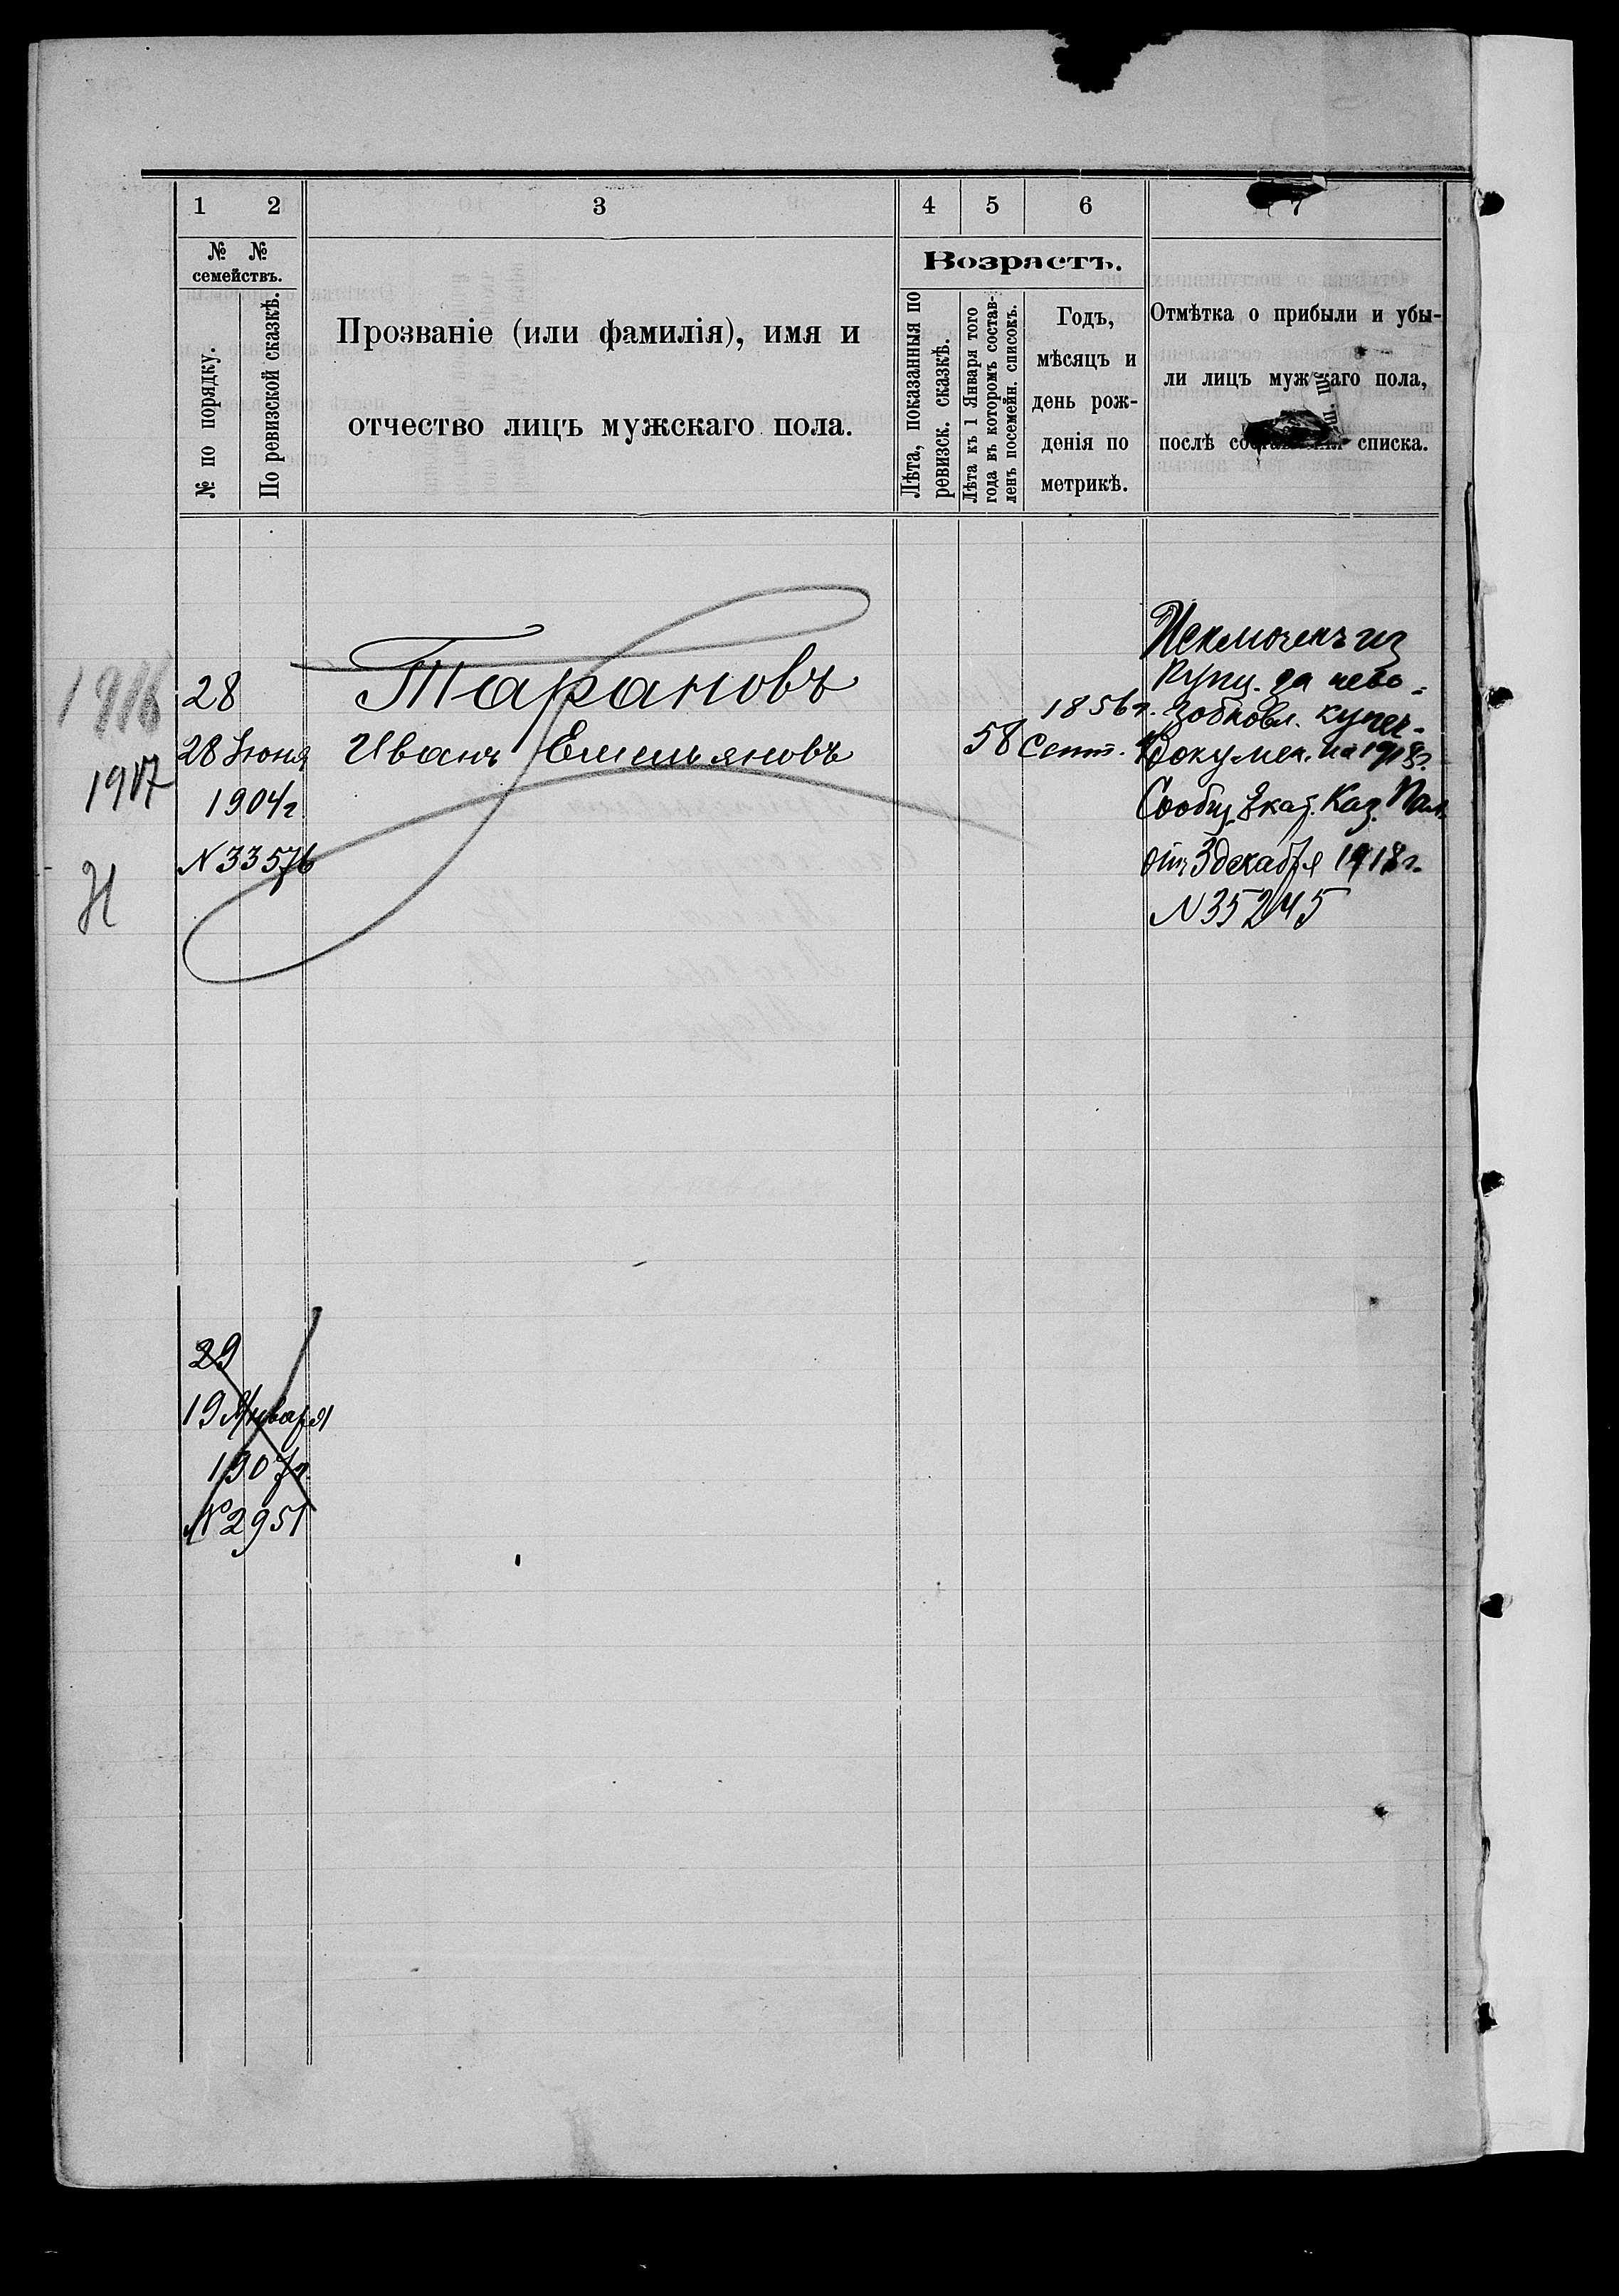 1 2 3 4 5 6 7
№ № семействъ.
№ по порядку.
По ревизской сказкѣ.
Прозваніе (или фамилія), имя и
отчество лицъ мужскаго пола.
Возрастъ.
Лѣта, показанныя по
ревизск. сказкѣ.
Лѣта къ 1 Января того
года въ которомъ состав-
ленъ посемейн. списокъ.
Годъ,
мѣсяцъ и
день рож-
денія по
метрикѣ.
Отмѣтка о прибыли и убы-
ли лицъ мужскаго пола,
послѣ составленія списка.
1916
1917
Н
28
28 Іюня
1904г
N 33576
Тарановъ
Иванъ Емельяновъ
58
1856г.
Сент.
Исключенъ из
купц. за нево-
зобновл. купеч.
докумен. на 1918г.
Сообщ. Екат. Каз. Пал.
отъ 3 декабря 1918г.
N 35245
29
19 Января
1907г.
№ 2951